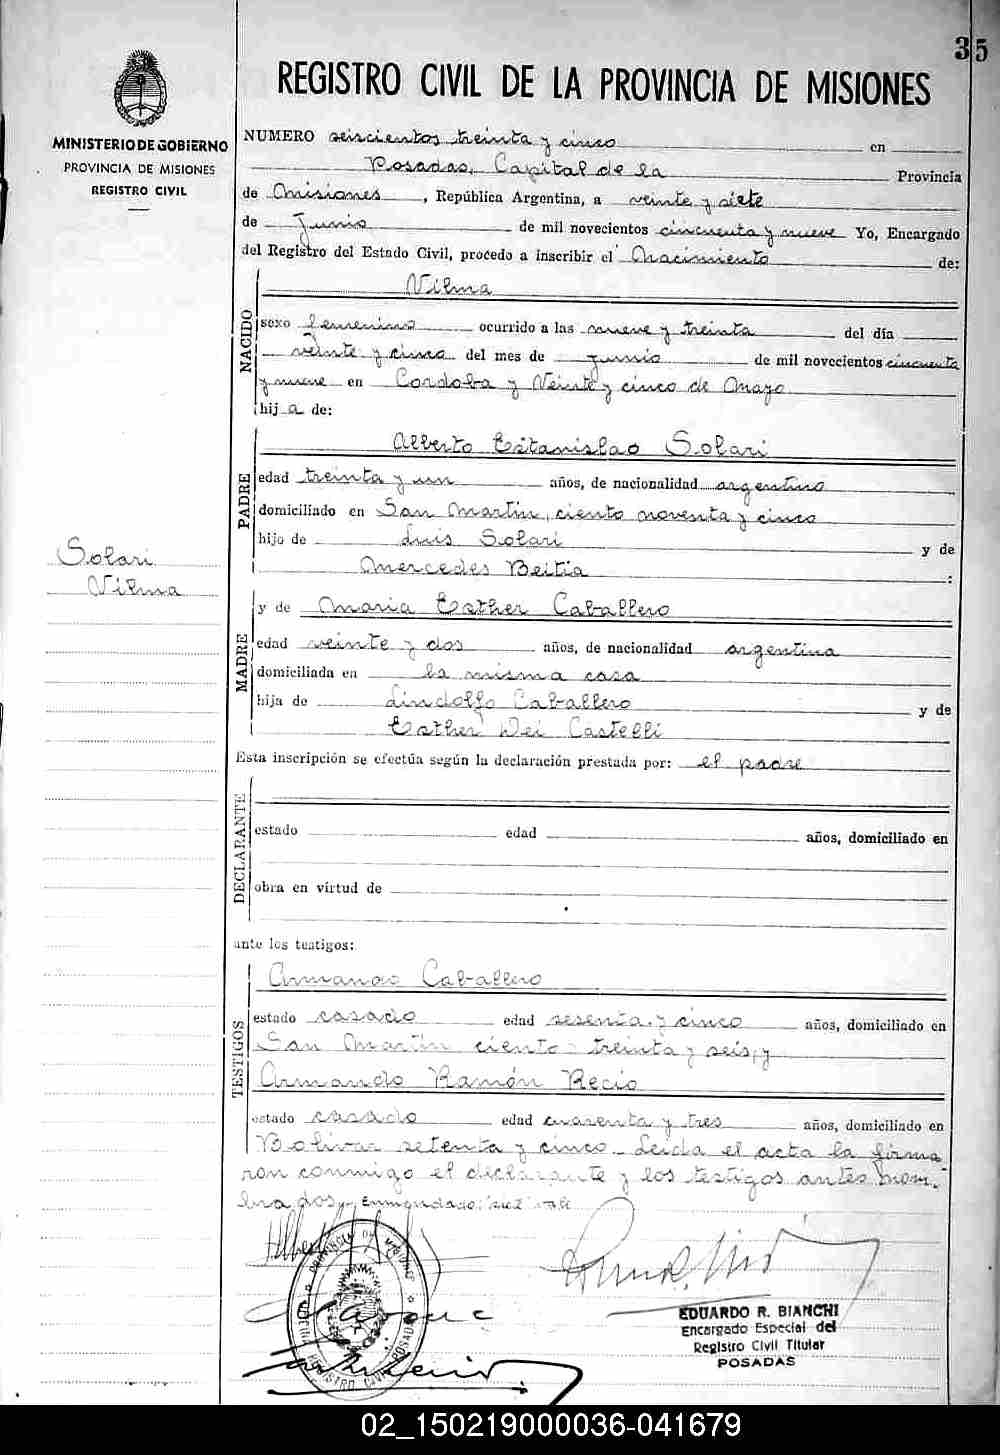 35
REGISTRO CIVIL DE LA PROVINCIA DE MISIONES
MINISTERIO DE GOBIERNO
PROVINCIA DE MISIONES
REGISTRO CIVIL
NUMERO seiscientos treinta y cinco en
Posadas, Capital de la Provincia
de Misiones, República Argentina, a veinte y siete
de Junio de mil novecientos cincuenta y nueve Yo, Encargado
del Registro del Estado Civil, procedo a inscribir el Nacimiento de:
NACIDO
Vilma
sexo femenino ocurrido a las nueve y treinta del día
veinte y cinco del mes de junio de mil novecientos cincuenta
y nueve en Cordoba y Veinte y cinco de Mayo
hija de:
PADRE
Alberto Estanislao Solari
edad treinta y un años, de nacionalidad argentino
domiciliado en San Martin, ciento noventa y cinco
hijo de Luis Solari y de
Mercedes Beitia :
Solari
Vilma
MADRE
y de Maria Esther Caballero
edad veinte y dos años, de nacionalidad argentina
domiciliada en la misma casa
hija de Lindolfo Caballero y de
Esther Dei Castelli
Esta inscripción se efectúa según la declaración prestada por: el padre
DECLARANTE
estado edad años, domiciliado en
obra en virtud de
ante los testigos:
TESTIGOS
Armando Caballero
estado casado edad sesenta y cinco años, domiciliado en
San Martin ciento treinta y seis, y
Armando Ramón Recio
estado casado edad cuarenta y tres años, domiciliado en
Bolivar setenta y cinco. Leida el acta la firma
ron conmigo el declarante y los testigos antes nom-
brados. Enmendado: vale
EDUARDO R. BIANCHI
Encargado Especial del
Registro Civil Titular
POSADAS
02_150219000036-041679